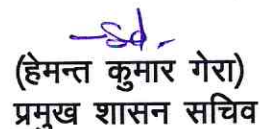 -Sd-
(हेमन्त कुमार गेरा)
प्रमुख शासन सचिव